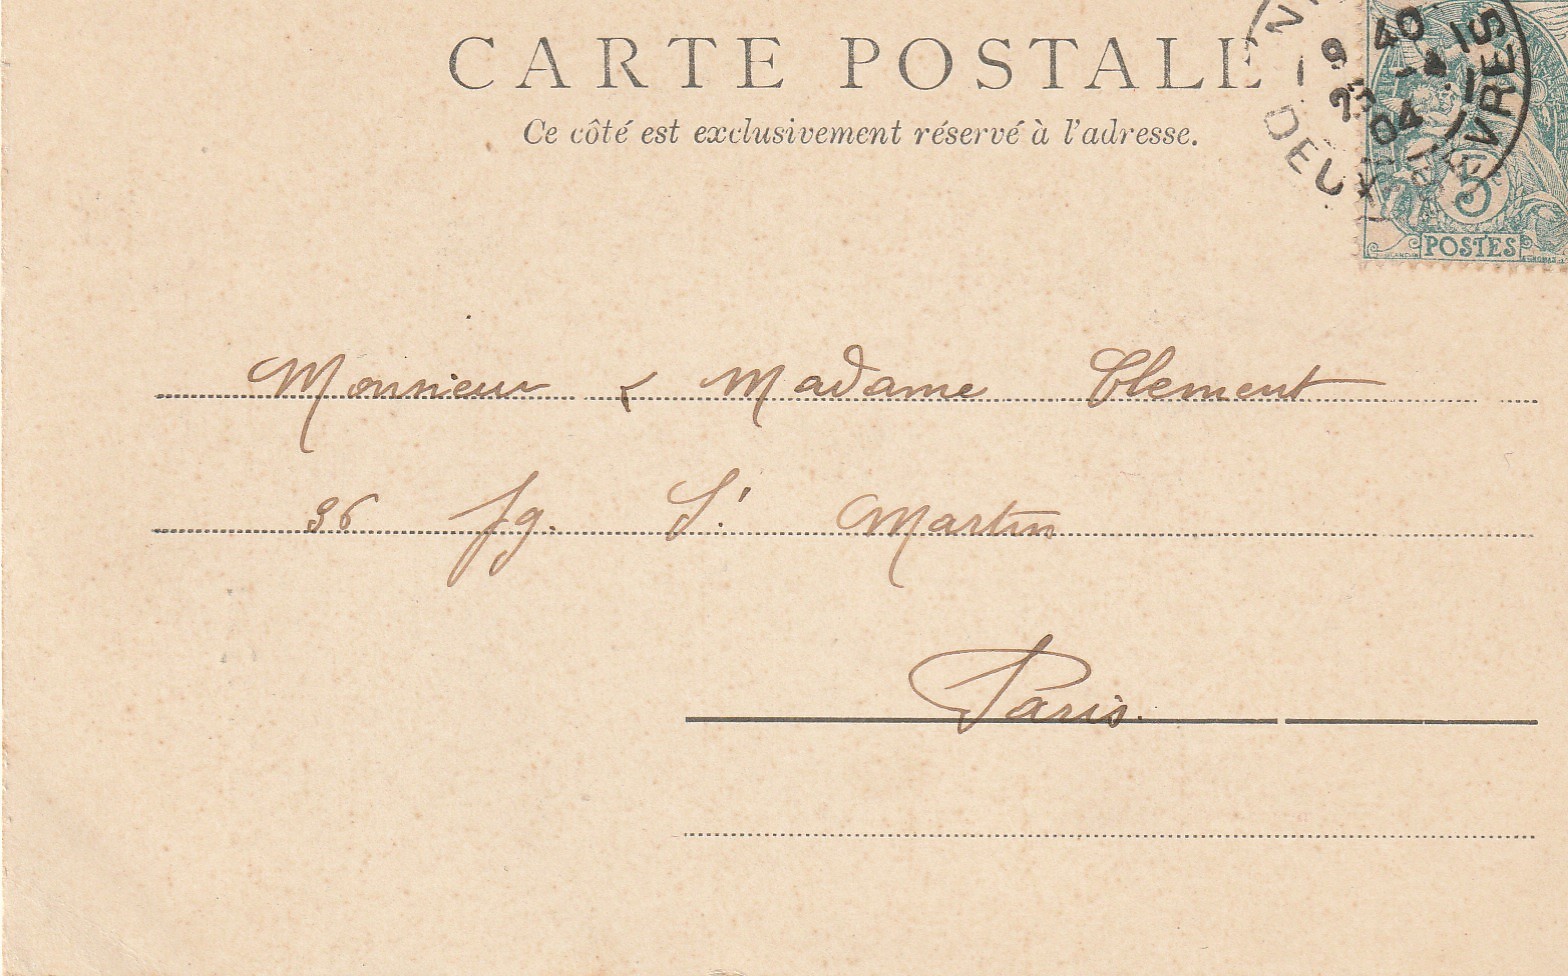 CARTE POSTALE
Ce côté est exclusivement réservé à l'adresse.
9 40
23
04
DEUX SÈVRES
5
POSTES
Monsieur & Madame Clement
96 fg. St Martin
Paris.